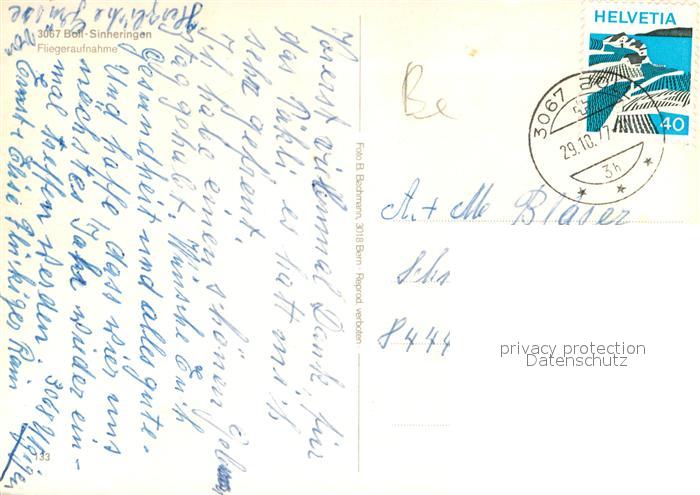 3067 Boll-Sinneringen
Fliegeraufnahme
Zuerst vielmal Dank, für
das Nükli es hat mich
sehr gefreut.
Ich habe einen schönen Geb
stag gehabt. Wünsche Euch
Gesundheit und alles gute.
Und hoffe dass wir uns
nächstes Jahr wieder ein-
mal treffen werden.
Herzliche Grüsse
von Ernst + Elise Flükiger Rain
133
Foto B. Blachmann, 3018 Bern · Reprod. verboten
Be
HELVETIA
40
3067
29.10.77
3h
A. + M Blaser
Schs
8444
privacy protection
Datenschutz